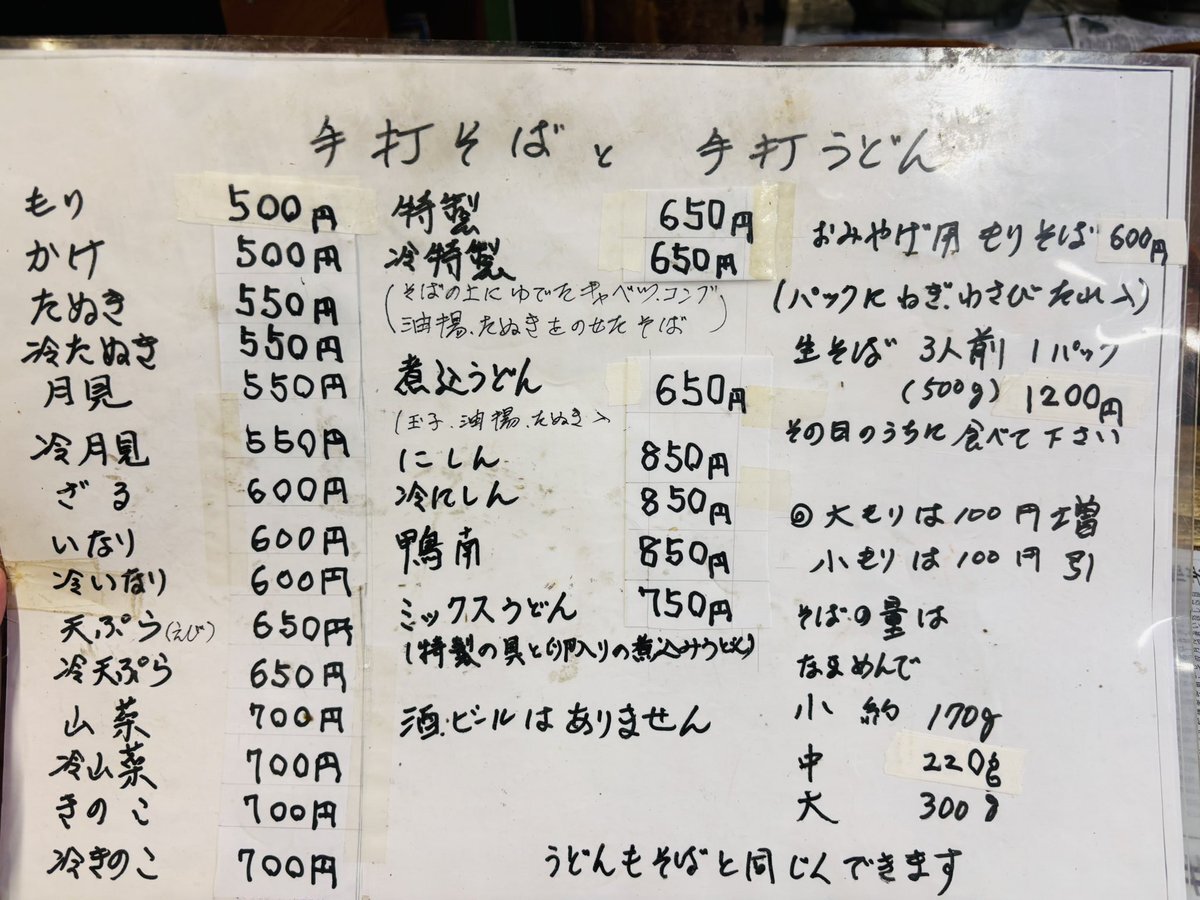 手打そばと 手打うどん
もり 500円
かけ 500円
たぬき 550円
冷たぬき 550円
月見 550円
冷月見 550円
ざる 600円
いなり 600円
冷いなり 600円
天ぷら(えび) 650円
冷天ぷら 650円
山菜 700円
冷山菜 700円
きのこ 700円
冷きのこ 700円
特製 650円
冷特製 650円
(そばの上にゆでたキャベツ、コンブ
油揚、たぬきをのせたそば)
煮込うどん 650円
(玉子、油揚、たぬき入
にしん 850円
冷にしん 850円
鴨南 850円
ミックスうどん 750円
(特製の具と卵入りの煮込みうどん)
酒・ビールはありません
おみやげ用もりそば 600円
(パックにねぎ、わさびたれ入)
生そば 3人前 1パック
(500g) 1200円
その日のうちに食べて下さい
◎大もりは100円増
小もりは100円引
そばの量は
なまめんで
小 約 170g
中 220g
大 300g
うどんもそばと同じくできます